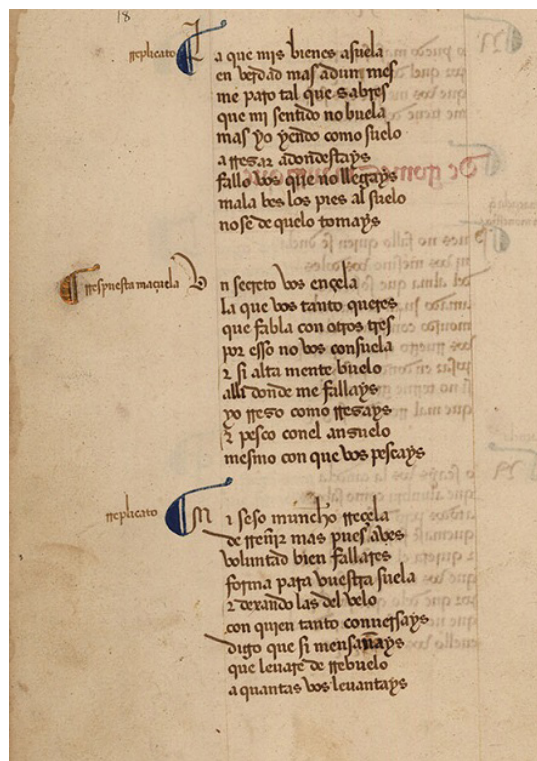 18
rreplicato La que mis bienes asuela
en verdad mas adun mes
me paro tal que sabres
que mi sentido no buela
mas yo yendo como suelo
a rregar adondestays
fallo vos que no llegays
mala bes los pies al suelo
nose de quelo tomays
rrespuesta maçuela Un secreto vos ençela
la que vos tanto queres
que fabla con otros tres
por esso no vos consuela
z si alta mente buelo
alli donde me fallays
yo rrego como rregays
z pesco conel ansuelo
mesmo con que vos pescays
rreplicato Mi seso muncho rreçela
de rreñir mas pues aves
voluntad bien fallares
forma para vuestra suela
z dexando las del velo
con quien tanto conuersays
digo que si mensañays
que leuare de rrebuelo
a quantas vos leuantays